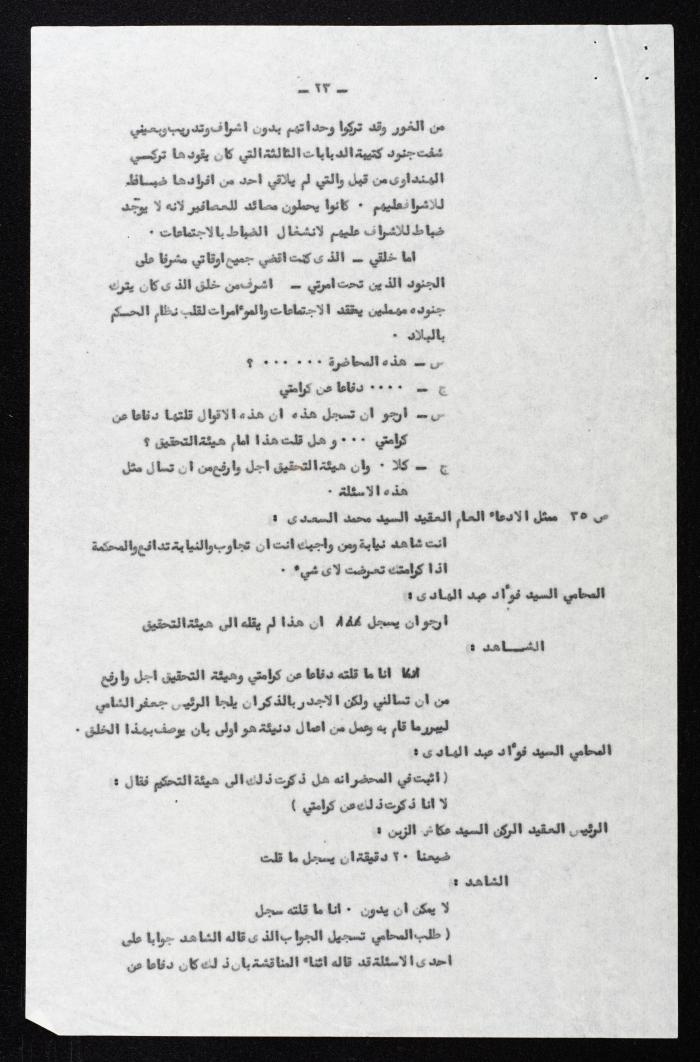 — ٢٣ —
من الغور وقد تركوا وحداتهم بدون اشراف وتدريب وبعيني
شفت جنود كتيبة الدبابات الثالثة التي كان يقودها تركي
الهنداوى من قبل والتي لم يلاقي احد من افرادها ضباط
للاشراف عليهم ٠ كانوا يحطون مصائد للعصافير لانه لا يوجد
ضباط للاشراف عليهم لانشغال الضباط بالاجتماعات ٠
اما خلقي — الذى كنت اقضي جميع اوقاتي مشرفا على
الجنود الذين تحت امرتي — اشرف من خلق الذى كان يترك
جنوده مهملين يعقد الاجتماعات والموٴامرات لقلب نظام الحكم
بالبلاد ٠
س — هذه المحاضرة ٠٠٠ ٠٠٠ ؟
ج — ٠٠٠٠ دفاعا عن كرامتي
س — ارجو ان تسجل هذه ان هذه الاقوال قلتها دفاعا عن
كرامتي ٠٠٠ و هل قلت هذا امام هيئة التحقيق ؟
ج — كلا ٠ وان هيئة التحقيق اجل وارفع من ان تسال مثل
هذه الاسئلة ٠
ص ٣٥ ممثل الادعاء العام العقيد السيد محمد السعدى :
انت شاهد نيابة ومن واجبك انت ان تجاوب والنيابة تدافع والمحكمة
اذا كرامتك تعرضت لاى شيء ٠
المحامي السيد فوٴاد عبد الهادى :
ارجو ان يسجل ان هذا لم يقله الى هيئة التحقيق
الشــاهد :
انا ما قلته دفاعا عن كرامتي وهيئة التحقيق اجل وارفع
من ان تسالني ولكن الاجدر بالذكر ان يلجا الرئيس جعفر الشامي
ليبرر ما قام به وعمل من اعمال دنيئة هو اولى بان يوصف بهذا الخلق ٠
المحامي السيد فوٴاد عبد الهادى :
( اثبت في المحضر انه هل ذكرت ذلك الى هيئة التحكيم فقال :
لا انا ذكرت ذلك عن كرامتي )
الرئيس العقيد الركن السيد عكاش الزبن :
ضيعنا ٢٠ دقيقة ان يسجل ما قلت
الشاهد :
لا يمكن ان يدون ٠ انا ما قلته سجل
( طلب المحامي تسجيل الجواب الذى قاله الشاهد جوابا على
احدى الاسئلة قد قاله اثناء المناقشة بان ذلك كان دفاعا عن